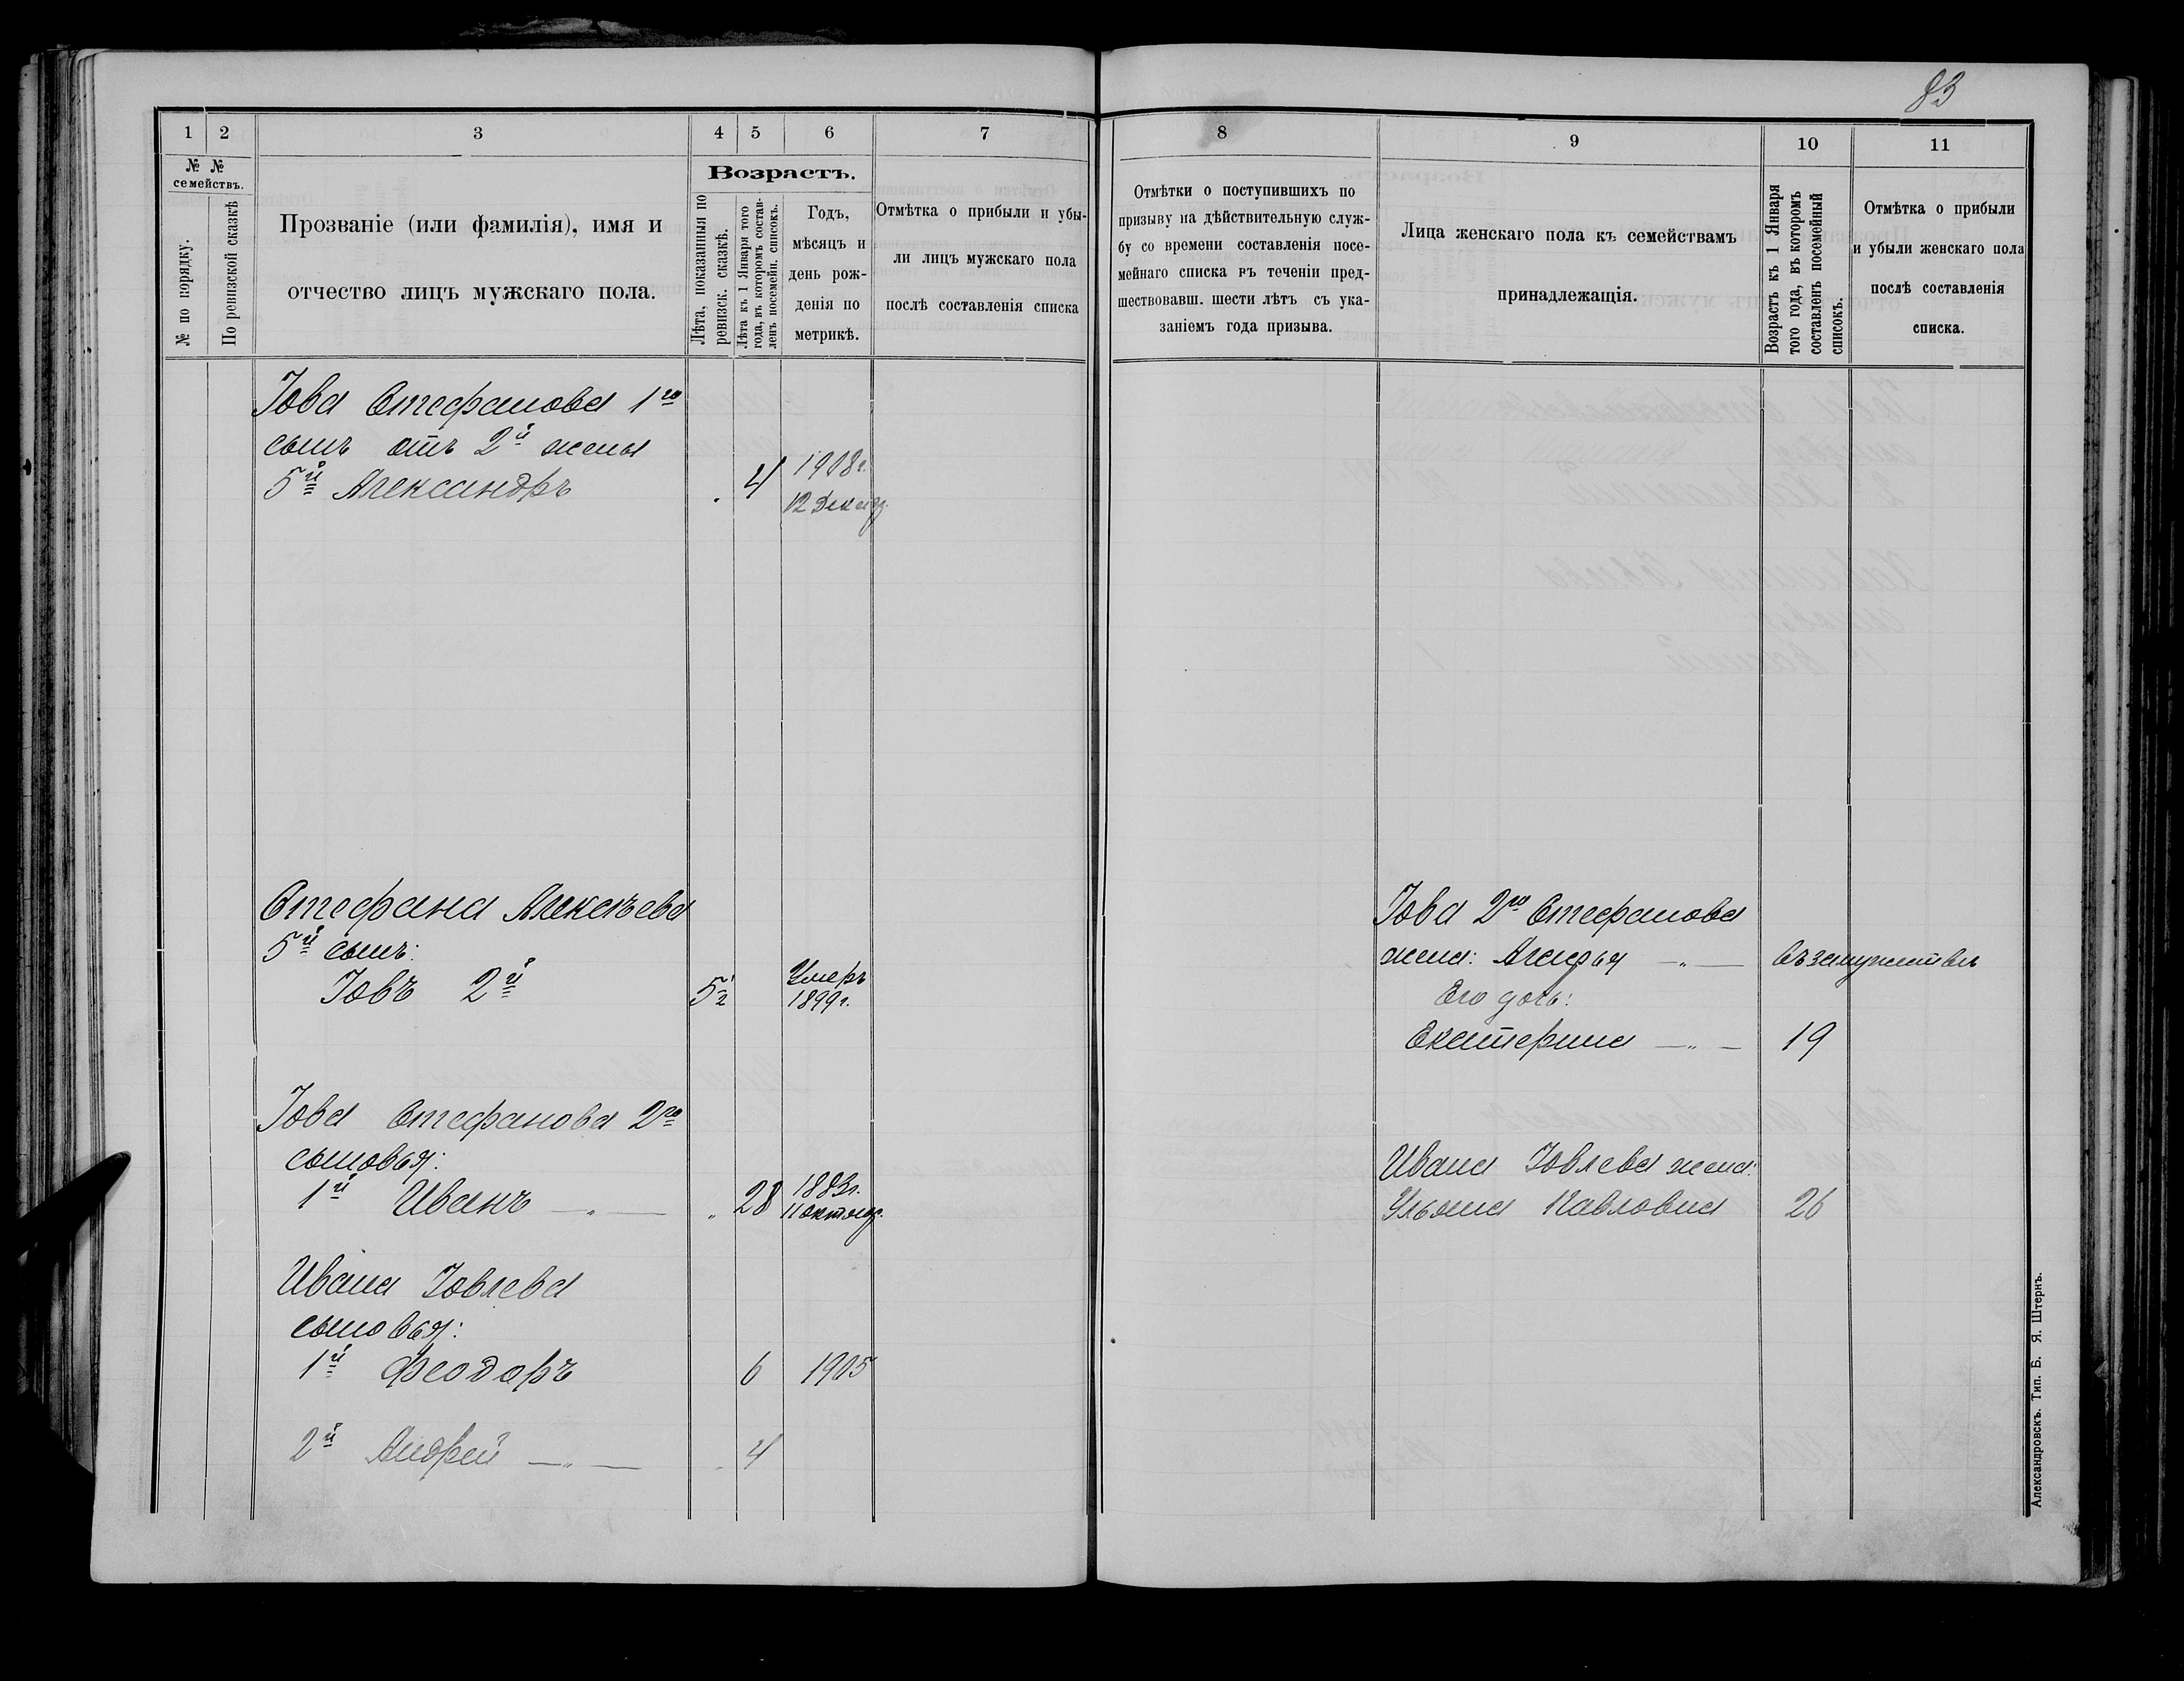 83
1 2 3 4 5 6 7
№ № семействъ.
№ по порядку.
По ревизской сказкѣ
Прозваніе (или фамилія), имя и
отчество лицъ мужскаго пола.
Возрастъ.
Лѣта, показанныя по
ревизск. сказкѣ.
Лѣта къ 1 Января того
года, въ которомъ состав-
ленъ посемейн. списокъ.
Годъ,
мѣсяцъ и
день рож-
денія по
метрикѣ.
Отмѣтка о прибыли и убы-
ли лицъ мужскаго пола
послѣ составленія списка
Іова Стефанова 1го
сынъ отъ 2й жены
5й Александръ . 4 1908г.
12 Декабр.
Стефана Алексѣева
5й сынъ:
Іовъ 2й 5½ Умеръ
1899г.
Іова Стефанова 2го
сыновья:
1й Иванъ — „ — „ 28 1883г.
11 октябр.
Ивана Іовлева
сыновья:
1й Феодоръ 6 1905
2й Андрей — „ — 4
8 9 10 11
Отмѣтки о поступившихъ по
призыву на дѣйствительную служ-
бу со времени составленія посе-
мейнаго списка въ теченіи пред-
шествовавш. шести лѣтъ съ ука-
заніемъ года призыва.
Лица женскаго пола къ семействамъ
принадлежащія.
Возрастъ къ 1 Января
того года, въ которомъ
составленъ посемейный
списокъ.
Отмѣтка о прибыли
и убыли женскаго пола
послѣ составленія
списка.
Іова 2го Стефанова
жена: — „ — въ замужствѣ
Его дочь:
Екатерина — „ — 19
Ивана Іовлева жена:
Ульяна Павловна 26
Александровскъ. Тип. Б. Я. Штернъ.